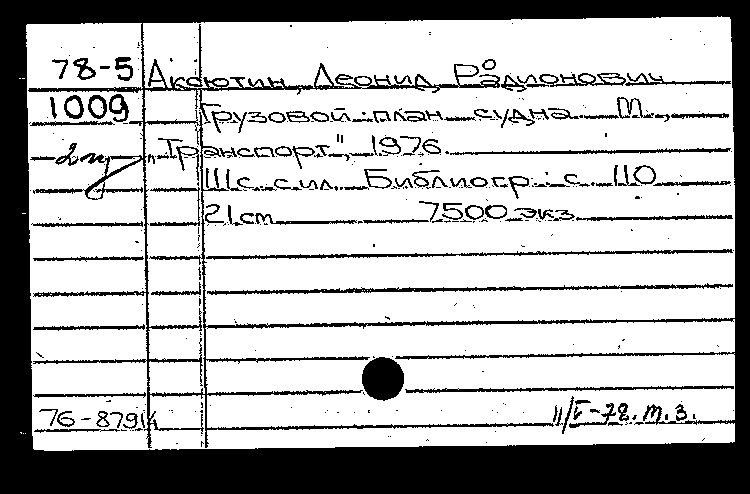 78-5 Аксютин, Леонид Радионович
1009 Грузовой план судна М.,
2 „Транспорт", 1976.
111с. с ил. Библиогр: с 110
21 cm 7500 экз.
76-879
11/V-78. т.з.